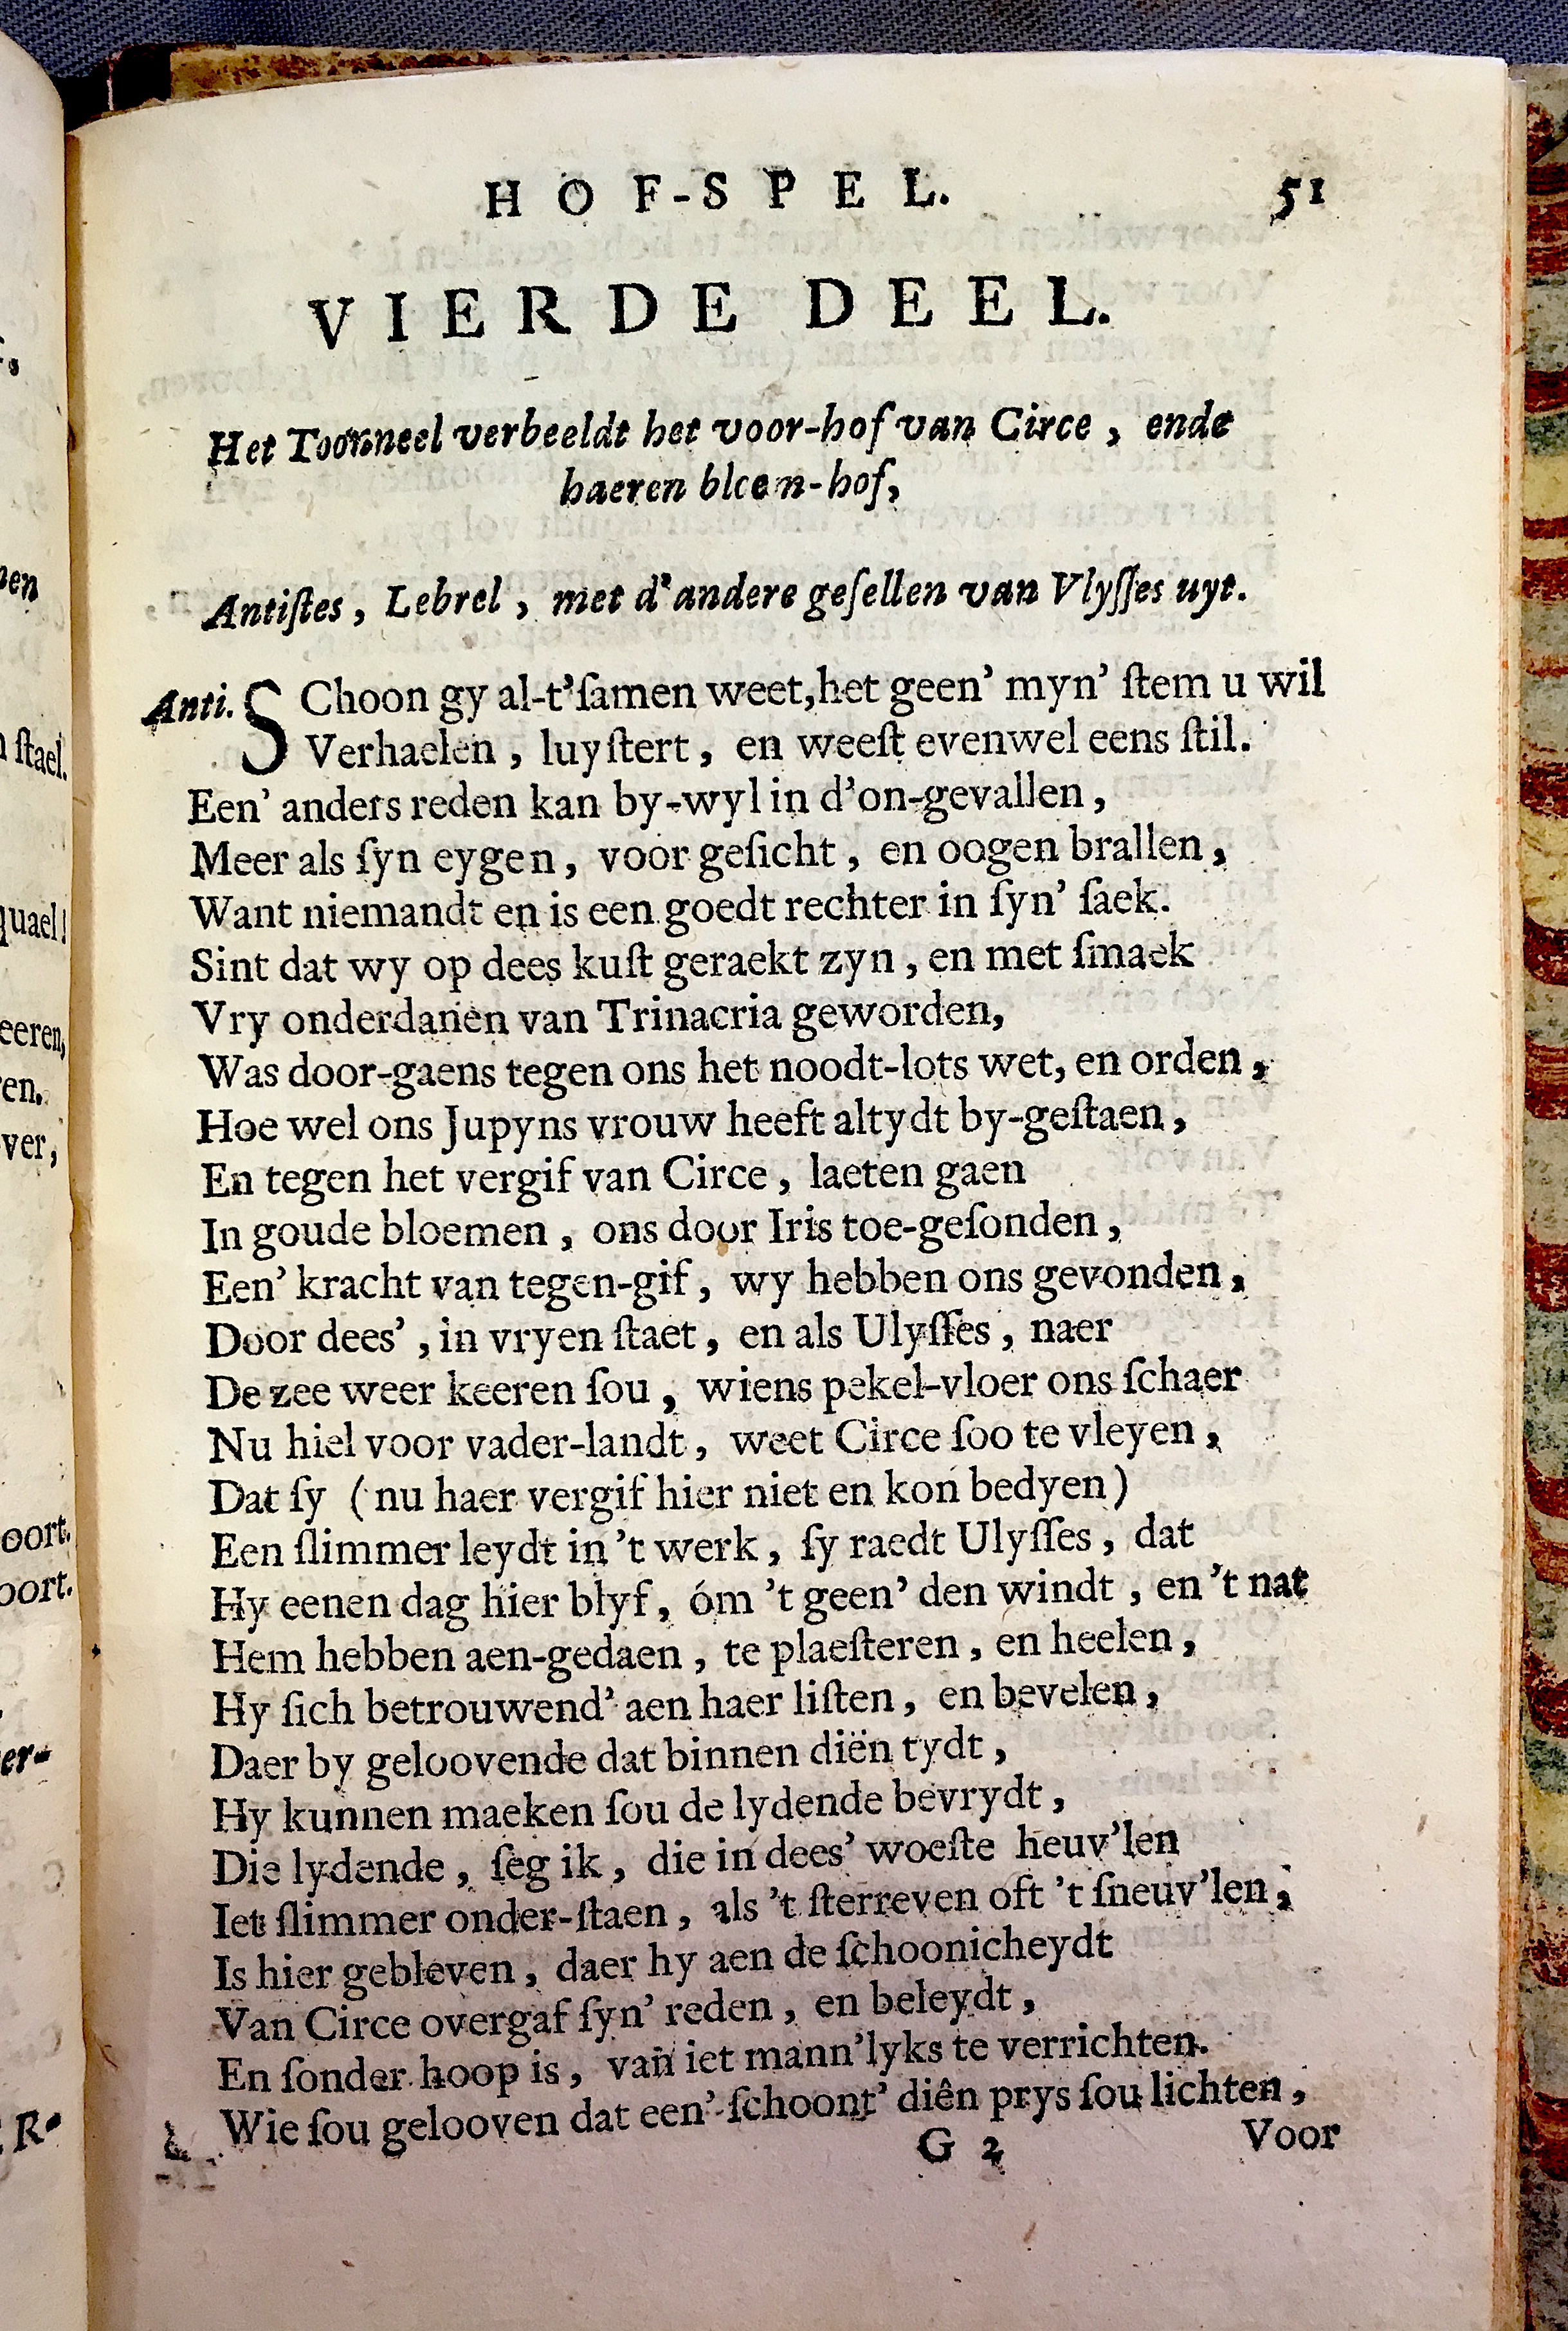 HOF-SPEL. 51
VIERDE DEEL.
Het Toonneel verbeeldt het voor-hof van Circe, ende
haeren bloem-hof,
Antiſtes, Lebrel, met d'andere geſellen van Vlyſſes uyt.
Anti. SChoon gy al-t'ſamen weet, het geen' myn' ſtem u wil
Verhaelen, luyſtert, en weeſt evenwel eens ſtil.
Een' anders reden kan by-wyl in d'on-gevallen,
Meer als ſyn eygen, voor geſicht, en oogen brallen,
Want niemandt en is een goedt rechter in ſyn' ſaek.
Sint dat wy op dees kuſt geraekt zyn, en met ſmaek
Vry onderdanen van Trinacria geworden,
Was door-gaens tegen ons het noodt-lots wet, en orden,
Hoe wel ons Jupyns vrouw heeft altydt by-geſtaen,
En tegen het vergif van Circe, laeten gaen
In goude bloemen, ons door Iris toe-geſonden,
Een' kracht van tegen-gif, wy hebben ons gevonden,
Door dees', in vryen ſtaet, en als Ulyſſes, naer
De zee weer keeren ſou, wiens pekel-vloer ons ſchaer
Nu hiel voor vader-landt, weet Circe ſoo te vleyen,
Dat ſy (nu haer vergif hier niet en kon bedyen)
Een ſlimmer leydt in 't werk, ſy raedt Ulyſſes, dat
Hy eenen dag hier blyf, óm 't geen' den windt, en 't nat
Hem hebben aen-gedaen, te plaeſteren, en heelen,
Hy ſich betrouwend' aen haer liſten, en bevelen,
Daer by geloovende dat binnen diën tydt,
Hy kunnen maeken ſou de lydende bevrydt,
Die lydende, ſeg ik, die in dees' woeſte heuv'len
Iet ſlimmer onder-ſtaen, als 't ſterreven oft 't ſneuv'len,
Is hier gebleven, daer hy aen de ſchoonicheydt
Van Circe overgaf ſyn' reden, en beleydt,
En ſonder hoop is, van iet mann'lyks te verrichten.
Wie ſou gelooven dat een' ſchoont' diên prys ſou lichten,
G 2 Voor